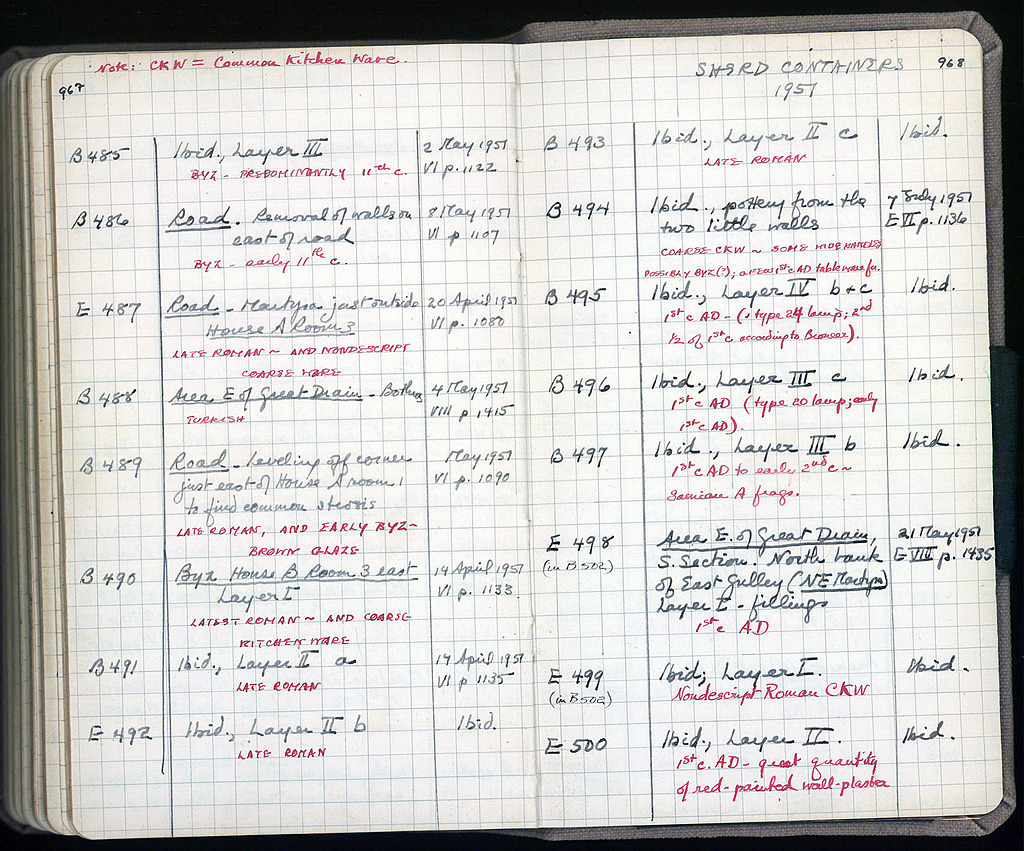 Note: CKW = Common Kitchen Ware.
967
B 485 Ibid., Layer III 2 May 1951
BYZ - PREDOMINANTLY 11th c. VI p. 1122
B 486 Road. Removal of walls on 8 May 1951
east of road VI p 1107
BYZ - early 11th c.
E 487 Road - Martyra just outside 20 April 1951
House A Room 3 VI p. 1080
LATE ROMAN ~ AND NONDESCRIPT
COARSE WARE
B 488 Area E of Great Drain - Bothros 4 May 1951
TURKISH VIII p. 1415
B 489 Road - Leveling off corner May 1951
just east of House A room 1 VI p. 1090
to find common sterois
LATE ROMAN, AND EARLY BYZ -
BROWN GLAZE
B 490 Byz House B Room 3 east 14 April 1951
Layer I VI p. 1133
LATEST ROMAN ~ AND COARSE
KITCHEN WARE
B 491 Ibid., Layer II a 14 April 1951
LATE ROMAN VI p 1135
E 492 Ibid., Layer II b Ibid.
LATE ROMAN
SHERD CONTAINERS 968
1951
B 493 Ibid., Layer II c Ibid.
LATE ROMAN
B 494 Ibid., pottery from the 7 July 1951
two little walls E VI p. 1136
COARSE CKW ~ SOME WIDE HANDLES
POSSIBLY BYZ(?); 1st c AD table ware
B 495 Ibid., Layer IV b + c Ibid.
1st c AD - (1 type 24 lamp; 2nd
1/2 of 1st c according to Broneer).
B 496 Ibid., Layer III c Ibid.
1st c AD (type 20 lamp; early
1st c AD).
B 497 Ibid., Layer III b Ibid.
1st c AD to early 2nd c ~
Samian A frags.
E 498 Area E. of Great Drain, 21 May 1951
(in B 502) S. Section. North bank E VIII p. 1435
of East Gulley (NE Martyra)
Layer I - fillings
1st c AD
E 499 Ibid; Layer I. Ibid.
(in B 502) Nondescript Roman CKW
E 500 Ibid., Layer II. Ibid.
1st c. AD - great quantity
of red-painted wall-plaster